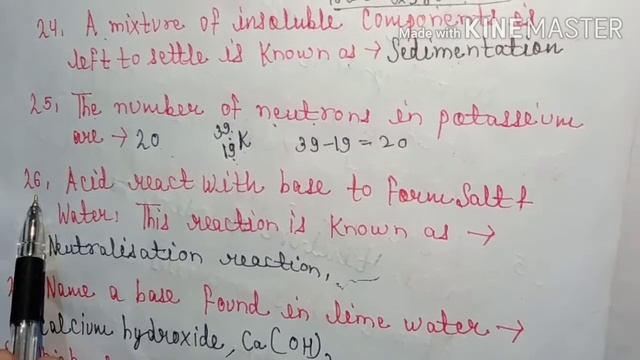 Made with KINEMASTER
24. A mixture of insoluble components is
left to settle is known as → Sedimentation
25. The number of neutrons in potasseium
are → 20 39 19 K 39-19=20
26. Acid react with base to form Salt +
Water. This reaction is known as →
Neutralisation reaction,
Name a base found in lime water →
Calcium hydroxide, Ca(OH)2